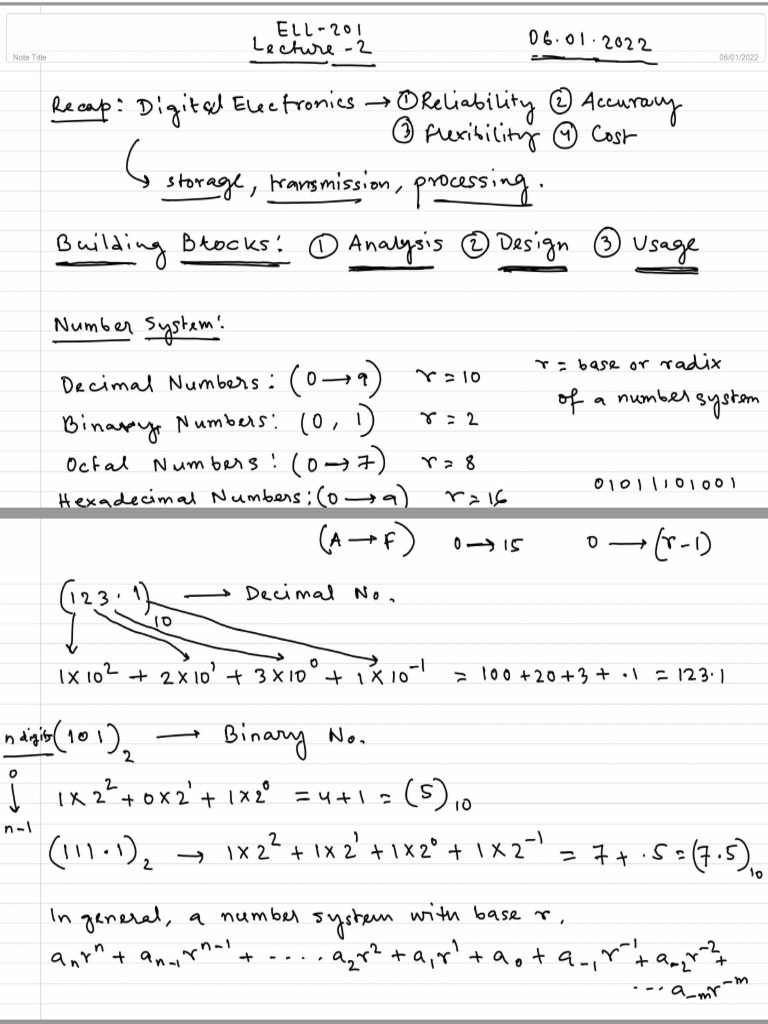 ELL-201
Lecture-2
06.01.2022
Note Title
06/01/2022
Recap: Digital Electronics → ① Reliability ② Accuracy
③ Flexibility ④ Cost
↳ storage, transmission, processing.
Building Blocks: ① Analysis ② Design ③ Usage
Number System:
Decimal Numbers: (0→9) r=10
r = base or radix
of a number system
Binary Numbers: (0, 1) r=2
Octal Numbers: (0→7) r=8
01011101001
Hexadecimal Numbers: (0→9) r=16
(A→F) 0→15 0→(r-1)
(123.1)₁₀ → Decimal No.
1×10² + 2×10¹ + 3×10⁰ + 1×10⁻¹ = 100+20+3+.1 = 123.1
n digits (101)₂ → Binary No.
0
↓
n-1
1×2²+0×2¹+1×2⁰ = 4+1 = (5)₁₀
(111.1)₂ → 1×2²+1×2¹+1×2⁰+1×2⁻¹ = 7+.5=(7.5)₁₀
In general, a number system with base r,
aₙrⁿ + aₙ₋₁rⁿ⁻¹ + ....a₂r² + a₁r¹ + a₀ + a₋₁r⁻¹ + a₋₂r⁻² +
... a₋ₘr⁻ᵐ